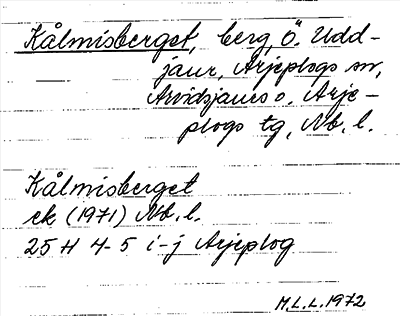 Kålmisberget, berg, Ö. Udd-
jaur, Arjeplogs sn,
Arvidsjaurs o. Arje-
plogs tg, Nb. l.
Kålmisberget
ek (1971) Nb. l.
25 H 4-5 i-j Arjeplog
M.L.L. 1972